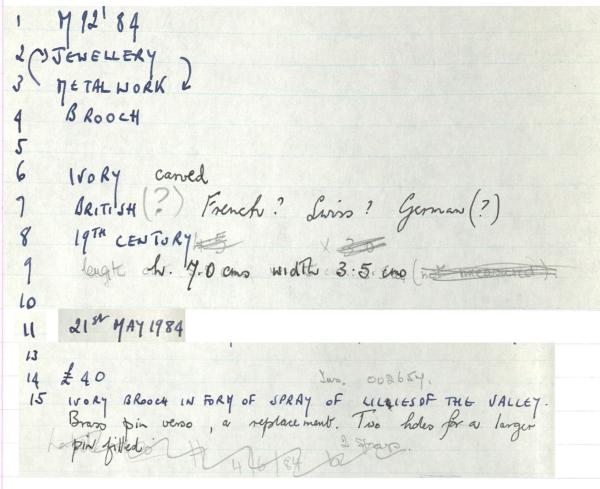 1 M 12' 84
2 JEWELLERY
3 METALWORK
4 BROOCH
5
6 IVORY carved
7 BRITISH (?) French? Swiss? German (?)
8 19TH CENTURY x 3.0
9 length h. 7.0 cms width 3.5 cms (not measured)
10
11 21ST MAY 1984
13
14 £40 Inv. 002654.
15 IVORY BROOCH IN FORM OF SPRAY OF LILLIES OF THE VALLEY.
Brass pin verso, a replacement. Two holes for a larger
pin filled. 2 sprays.
4/6/84